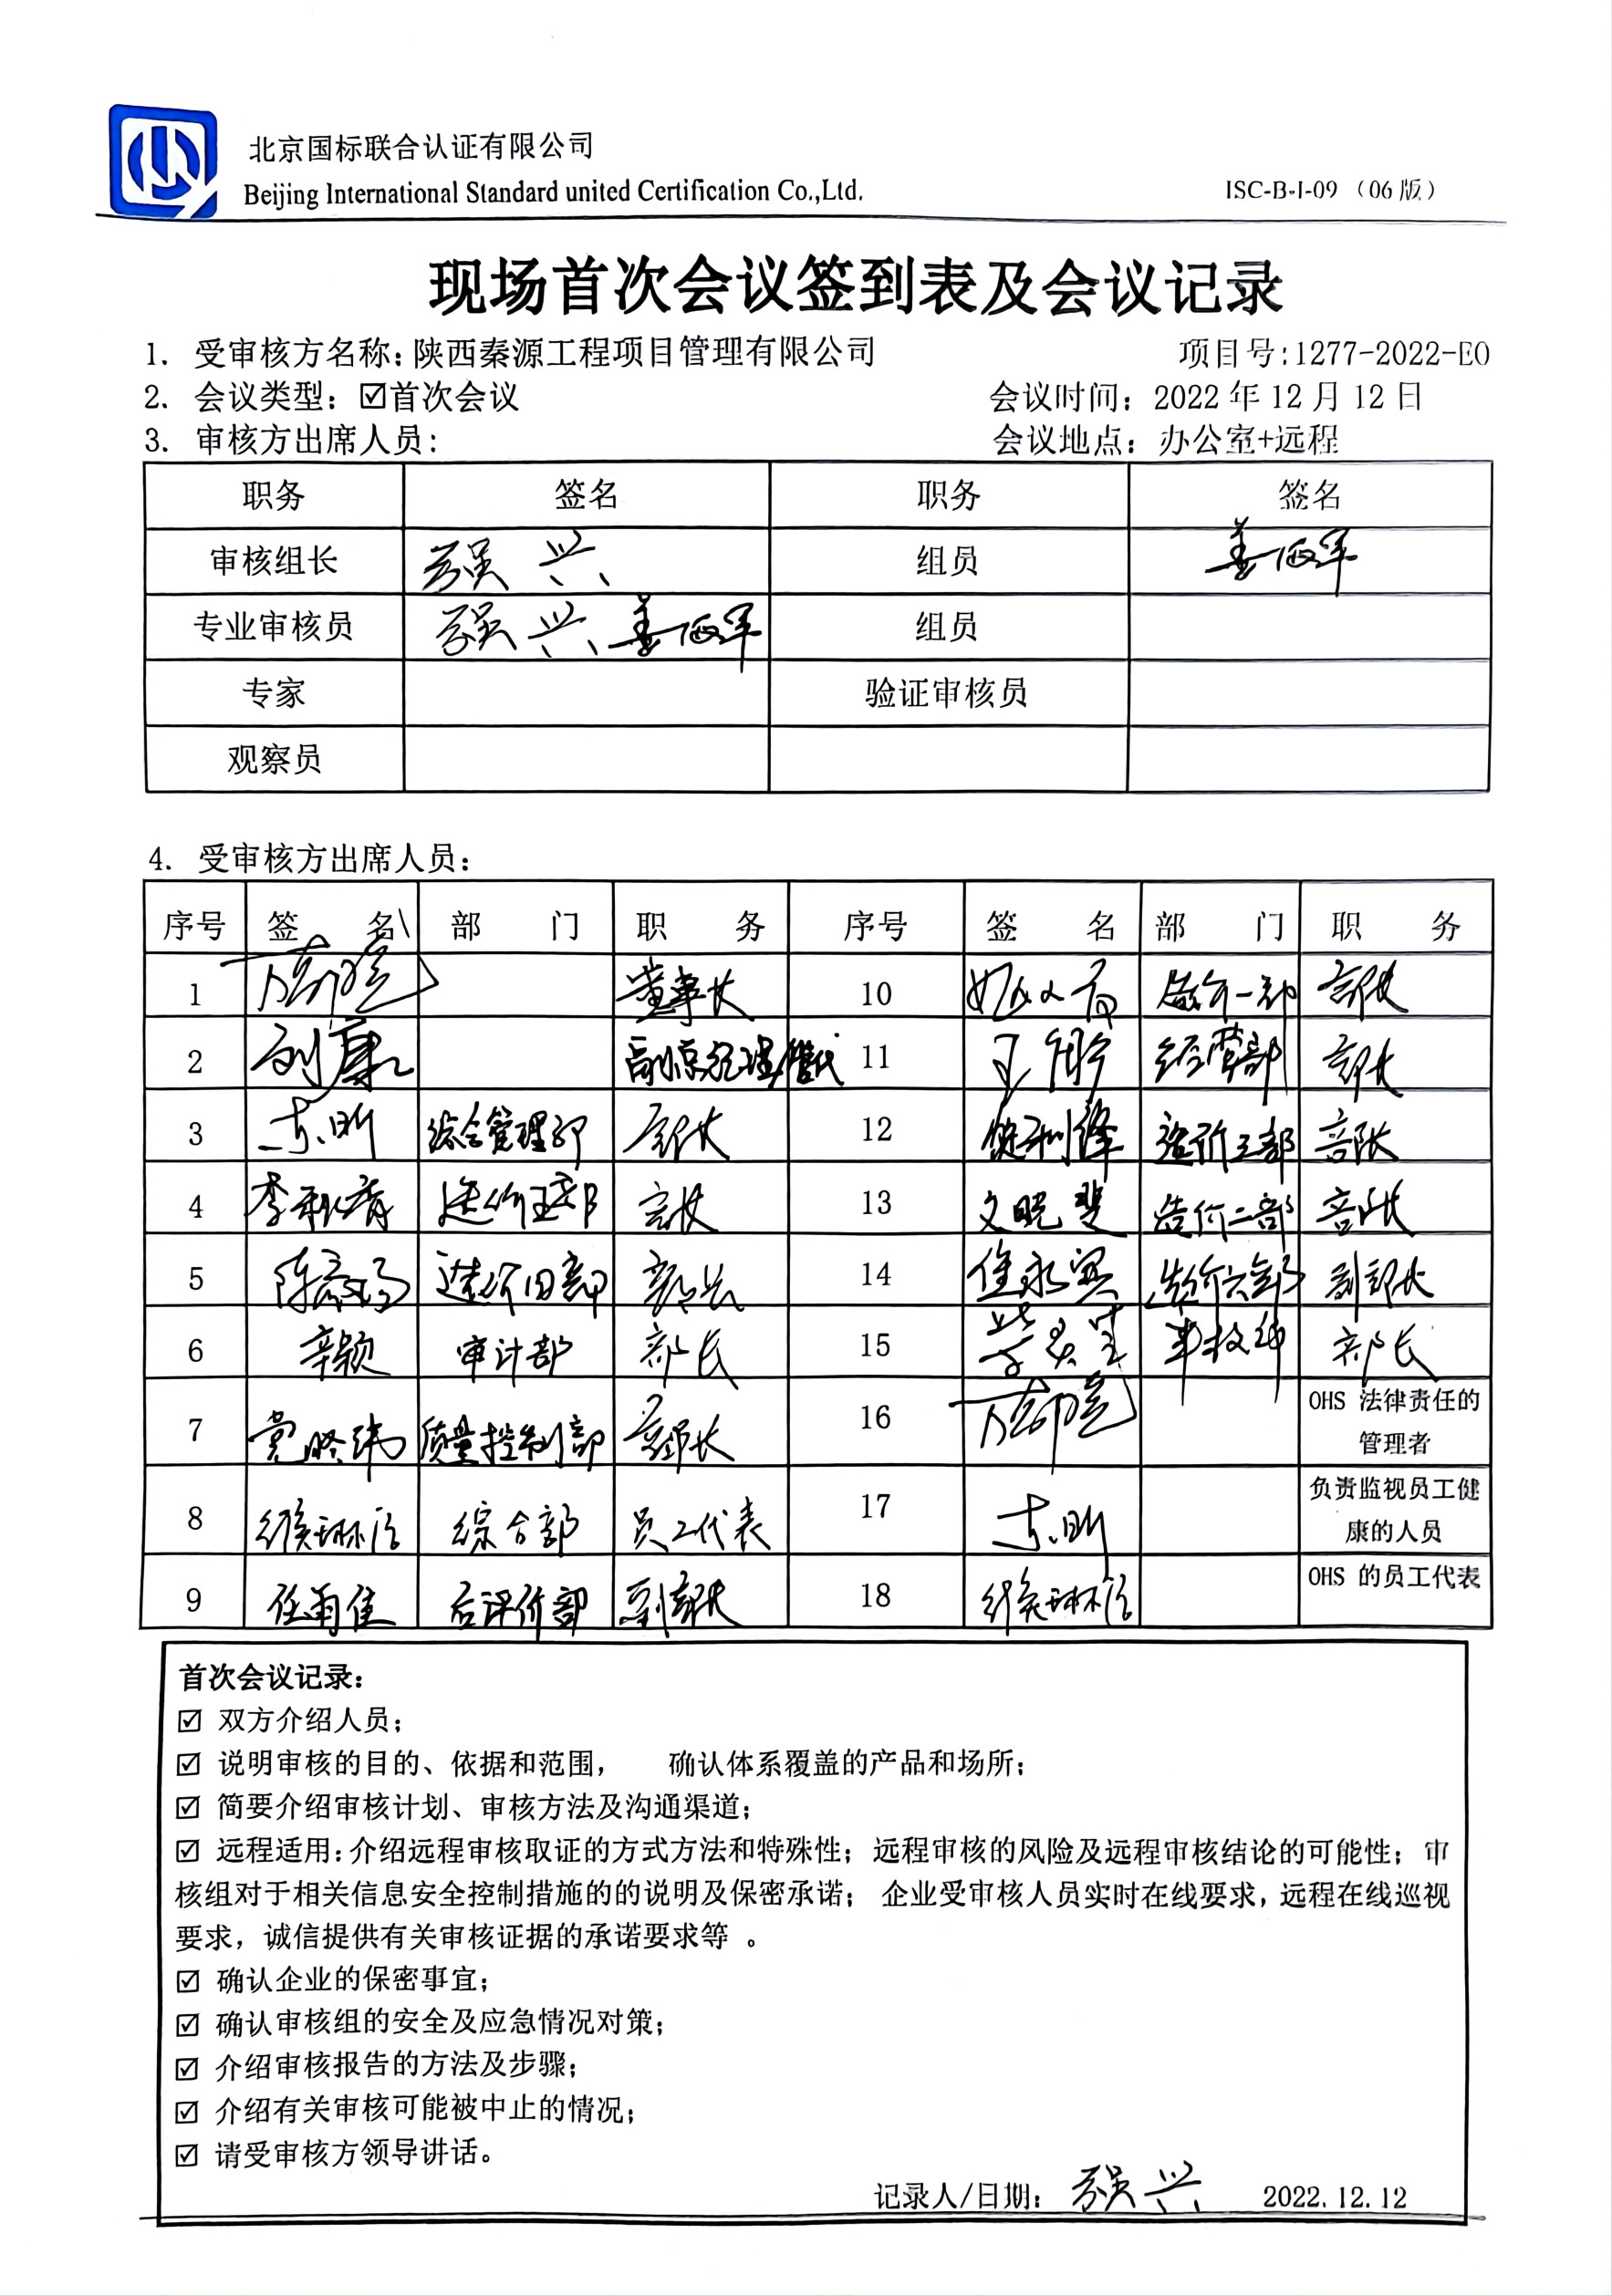 北京国标联合认证有限公司
Beijing International Standard united Certification Co.,Ltd.
ISC-B-I-09（06版）
现场首次会议签到表及会议记录
1. 受审核方名称:陕西秦源工程项目管理有限公司 项目号:1277-2022-EO
2. 会议类型: ☑首次会议 会议时间: 2022 年 12 月 12 日
3. 审核方出席人员: 会议地点: 办公室+远程
职务 签名 职务 签名
审核组长 强兴 组员 姜海军
专业审核员 强兴 姜海军 组员
专家 验证审核员
观察员
4. 受审核方出席人员:
序号 签名 部门 职务 序号 签名 部门 职务
1 董事长 10 造价一部 部长
2 刘康 副总经理/管代 11 经营部 部长
3 综合管理部 部长 12 造价三部 部长
4 李秋青 造价五部 部长 13 文晓斐 造价二部 部长
5 造价四部 部长 14 造价六部 副部长
6 辛颖 审计部 部长 15 部长
7 党晓玮 质量控制部 部长 16 OHS 法律责任的管理者
8 综合部 员工代表 17 负责监视员工健康的人员
9 任雨佳 后评价部 副部长 18 OHS 的员工代表
首次会议记录:
☑ 双方介绍人员;
☑ 说明审核的目的、依据和范围, 确认体系覆盖的产品和场所;
☑ 简要介绍审核计划、审核方法及沟通渠道;
☑ 远程适用:介绍远程审核取证的方式方法和特殊性; 远程审核的风险及远程审核结论的可能性; 审
核组对于相关信息安全控制措施的的说明及保密承诺; 企业受审核人员实时在线要求,远程在线巡视
要求, 诚信提供有关审核证据的承诺要求等 。
☑ 确认企业的保密事宜;
☑ 确认审核组的安全及应急情况对策;
☑ 介绍审核报告的方法及步骤;
☑ 介绍有关审核可能被中止的情况;
☑ 请受审核方领导讲话。
记录人/日期: 强兴 2022.12.12